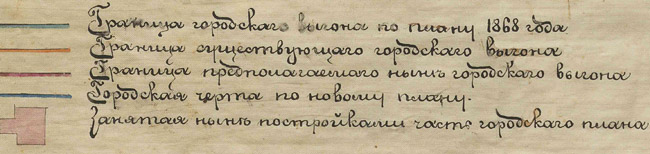 Граница городскаго выгона по плану 1868 года
Граница существующаго городскаго выгона
Граница предполагаемаго нынѣ городскаго выгона
Городская черта по новому плану.
Занятая нынѣ постройками часть городскаго плана